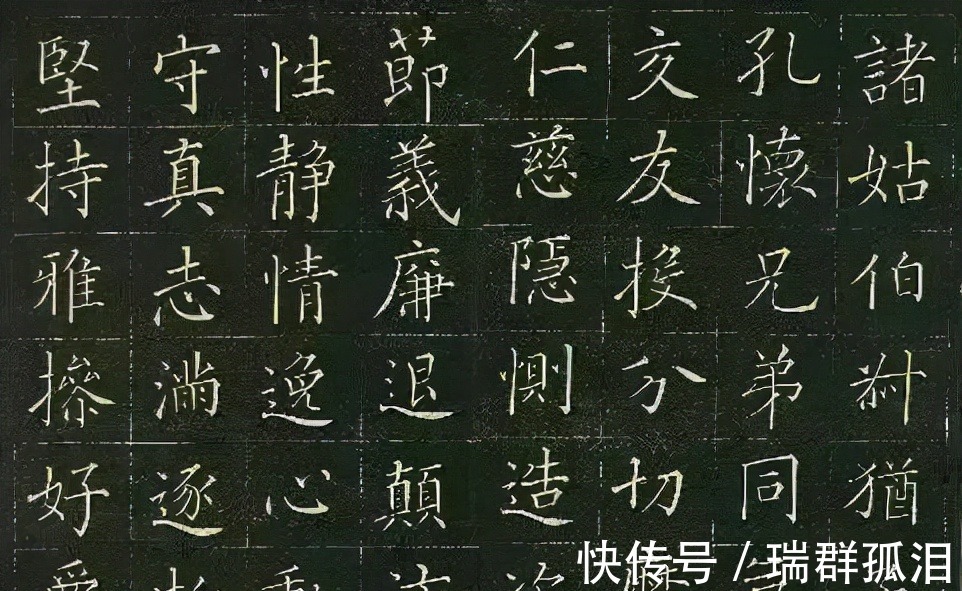 諸姑伯叔猶
孔懷兄弟同
交友投分切
仁慈隠惻造
莭義廉退顛
性静情逸心
守真志滿逐
堅持雅摻好
快传号 / 瑞群孤泪